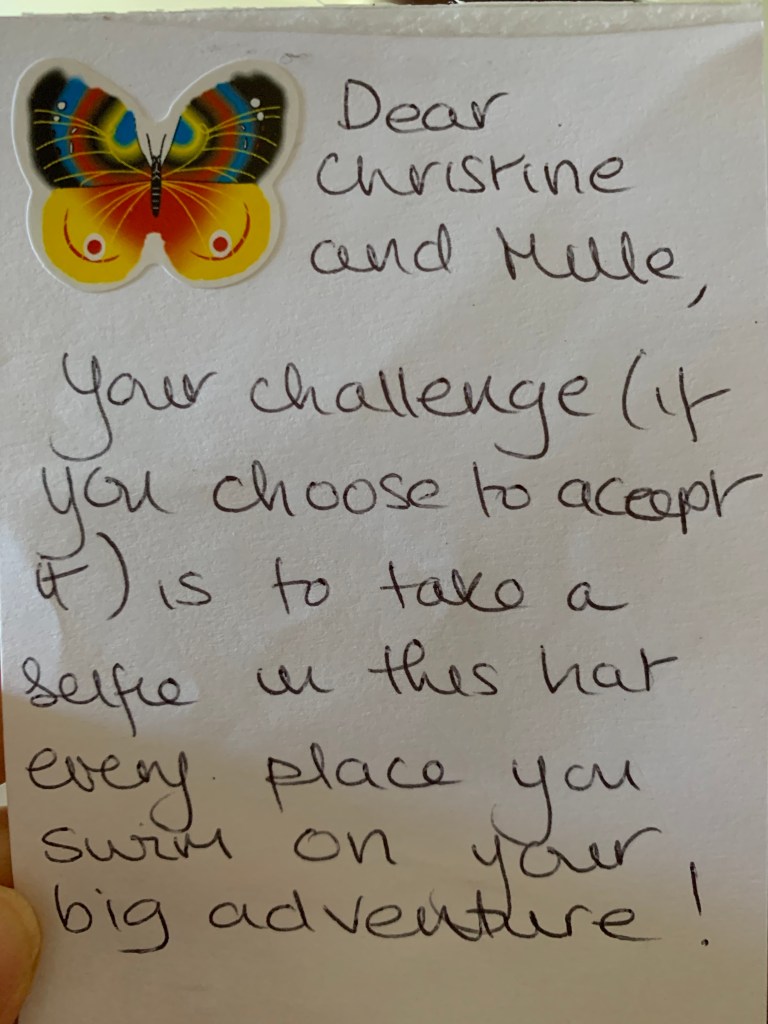 Dear
Christine
and Mille,
Your challenge (if
you choose to accept
it) is to take a
selfie in this hat
every place you
swim on your
big adventure!